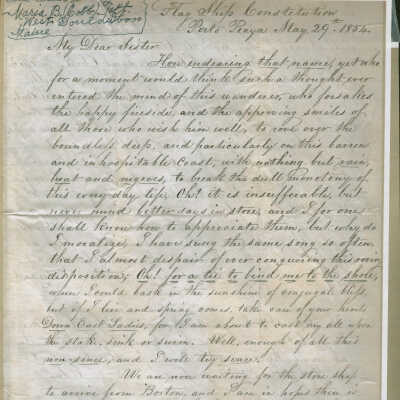 Maria B. Cobb
West Gouldsboro
Maine
Flag Ship Constitution
Porto Praya May 29th 1854.
My Dear Sister
How endearing that name, yet who
for a moment would think such a thought ever
entered the mind of this wanderer, who forsakes
the happy fireside, and the approving smiles of
all those who wish him well, to rove over the
boundless deep, and particularly on this barren
and inhospitable Coast, with nothing but rain,
heat and negroes, to break the dull monotony of
this every day life, Oh! it is insufferable, but
never mind better days in store, and I for one
shall know how to appreciate them, but why do
I moralize, I have sung the same song so often,
that I almost despair of ever conquering this
disposition, Oh! for a tie to bind me to the shore,
when I could bask in the sunshine of conjugal bliss,
but if I live and spring comes, take care of your hearts
Down East Ladies, for I am about to cast my all upon
the stake, sink or swim. Well, enough of all this
non-sence, and I will try sence.
We are now waiting for the store ship
to arrive from Boston, and I am in hopes there is